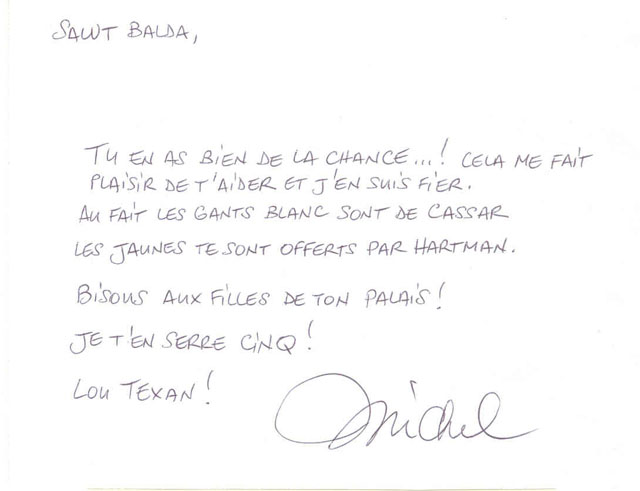 SALUT BALDA,
TU EN AS BIEN DE LA CHANCE...! CELA ME FAIT
PLAISIR DE T'AIDER ET J'EN SUIS FIER.
AU FAIT LES GANTS BLANC SONT DE CASSAR
LES JAUNES TE SONT OFFERTS PAR HARTMAN.
BISOUS AUX FILLES DE TON PALAIS!
JE T'EN SERRE CINQ!
LOU TEXAN!
Michel